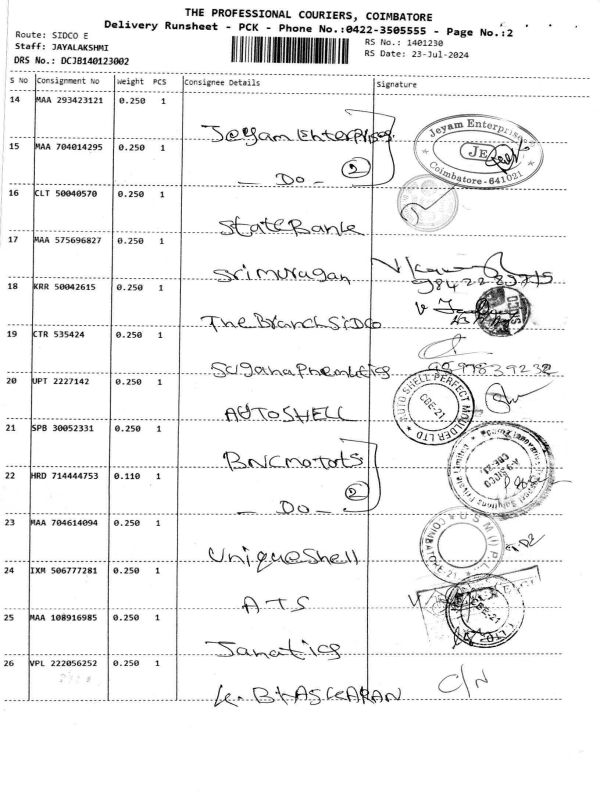 THE PROFESSIONAL COURIERS, COIMBATORE
Delivery Runsheet - PCK - Phone No.:0422-3505555 - Page No.:2
Route: SIDCO E
RS No.: 1401230
Staff: JAYALAKSHMI
RS Date: 23-Jul-2024
DRS No.: DCJB140123002
S No Consignment No Weight PCS Consignee Details Signature
14 MAA 293423121 0.250 1
Jeyam Enterprises
Jeyam Enterprises
JE
Coimbatore - 641021
15 MAA 704014295 0.250 1
- Do - 2
16 CLT 50040570 0.250 1
State Bank
17 MAA 575696827 0.250 1
Srimuragan
18 KRR 50042615 0.250 1
The Branch SIDCO
SIDCO
19 CTR 535424 0.250 1
20 UPT 2227142 0.250 1
AUTOSHELL
AUTO SHELL PERFECT MOULDER LTD
CBE-21
21 SPB 30052331 0.250 1
BNC motors
22 HRD 714444753 0.110 1
- Do - 2
A-9 SIDCO
CBE-21
23 MAA 704614094 0.250 1
Unique Shell
U S M (I) P L
COIMBATORE-21
24 IXM 506777281 0.250 1
ATS
CBE-21
25 MAA 108916985 0.250 1
Janatics
26 VPL 222056252 0.250 1
K. BHASKARAN
C/N